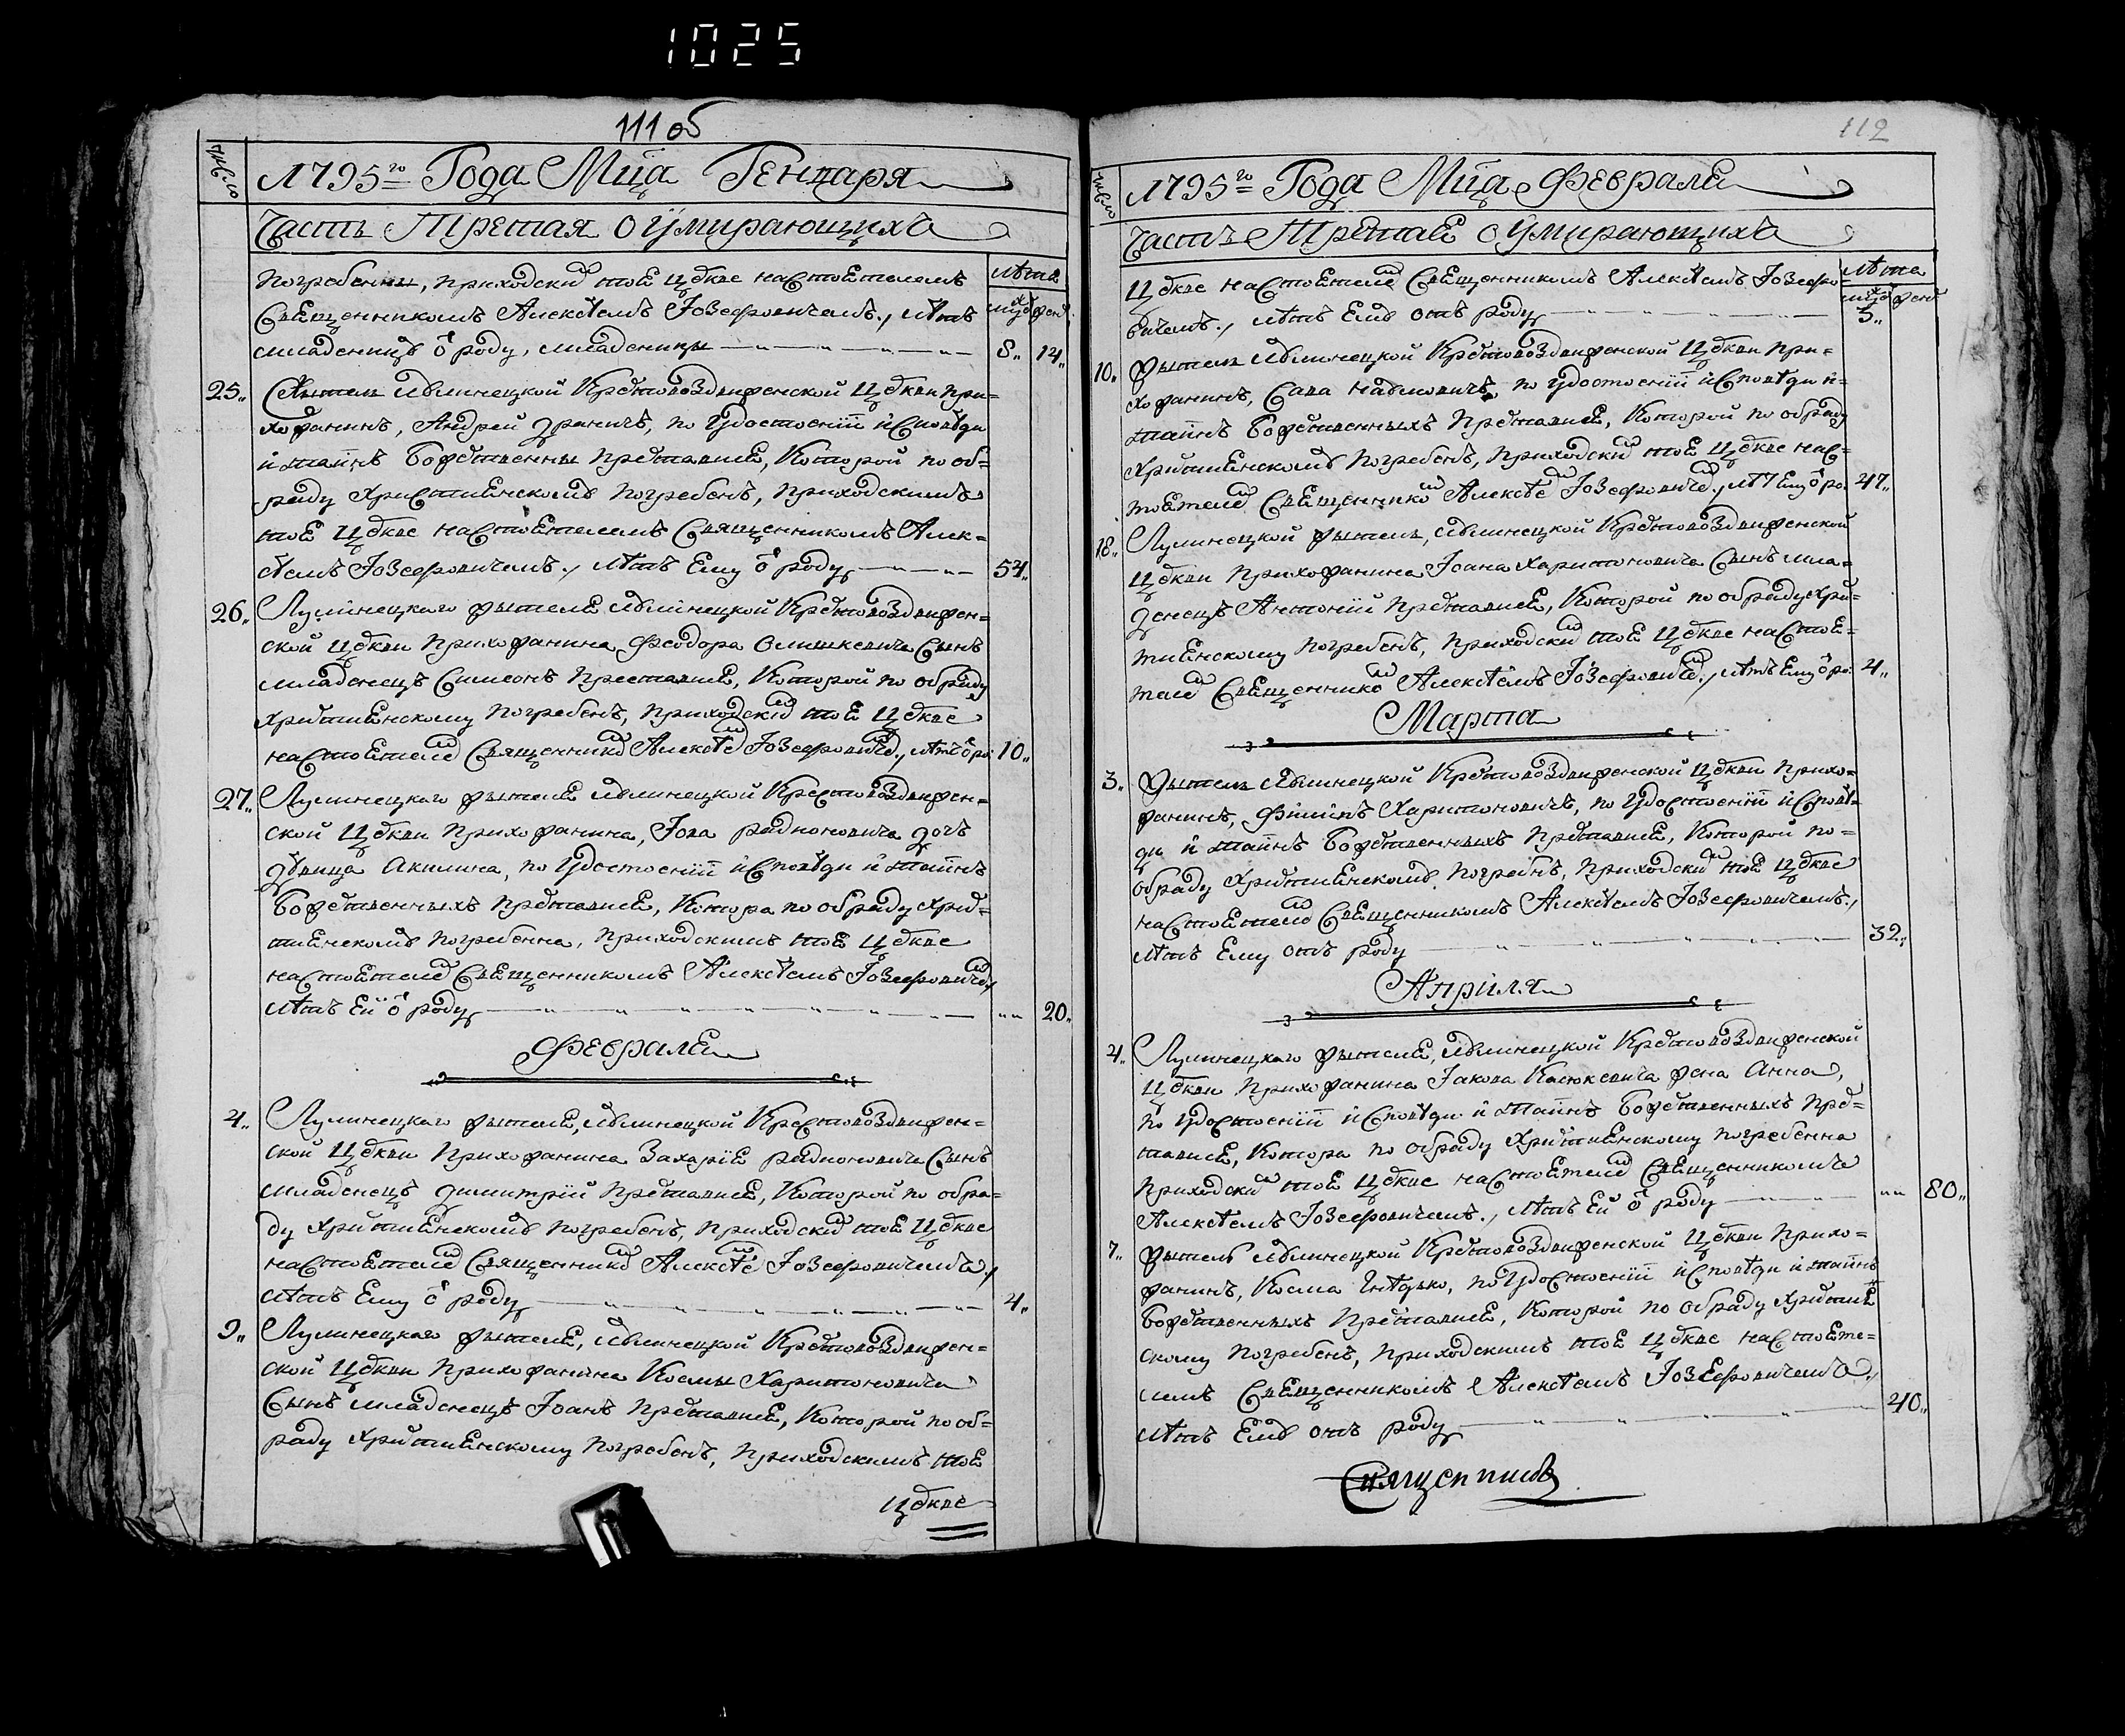 1025
111 об
число
1795го Года Мца Генваря
Часть Третая о умирающихъ
лѣта
муж жен
погребенны, приходским тоя Цркве настоятелемъ
Священникомъ Алексѣемъ Іозефовичемъ, лѣтъ
младенцу о роду, младеницы 8 14
25 Житель Лунинецкой Крестовоздвиженской Цркви при=
хожанинъ, Андрей, по удостоеніи исповѣди
и таинъ Божественны преставися, которой по об=
раду християнскому погребенъ, приходскимъ
тоя Цркве настоятелемъ Священникомъ Алек=
сѣемъ Іозефовичемъ, лѣтъ ему о роду 54
26 Лунинецкаго жителя Лунинецкой Крестовоздвижен=
ской Цркви прихожанина Феодора Олишкевича сынъ
младенецъ Симеонъ преставися, которой по обраду
християнскому погребенъ, приходским тоя Цркве
настоятелем Священником Алексѣем Іозефовичем, лѣтъ о ро: 10
27 Лунинецкаго жителя Лунинецкой Крестовоздвижен=
ской Цркви прихожанина, Іова Радионовича дочъ
дѣвица Акилина, по удостоеніи исповѣди и таинъ
Божественныхъ преставися, котора по обраду хрис=
тиянскому погребенна, приходскимъ тоя Цркве
настоятелем Священникомъ Алексѣемъ Іозефовичем,
лѣтъ ей о роду 20
Февраля
4 Лунинецкаго жителя, Лунинецкой Крестовоздвижен=
ской Цркви прихожанина Захарія Радионовича сынъ
младенецъ Димитрій преставися, которой по обра=
ду християнскому погребенъ, приходским тоя Цркве
настоятелем Священником Алексѣем Іозефовичемъ,
лѣтъ ему о роду 4
9 Лунинецкаго жителя, Лунинецкой Крестовоздвижен=
ской Цркви прихожанина Космы Харитоновича
сынъ младенецъ Іоанъ преставися, которой по об=
раду християнскому погребенъ, приходскимъ тоя
Цркве
112
число
1795го Года Мца Февраля
Часть Третая о умирающихъ
лѣта
муж жен
Цркве настоятелем Священникомъ Алексѣемъ Іозефо=
вичемъ, лѣтъ ему отъ роду 5
10 Житель Лунинецкой Крестовоздвиженской Цркви при=
хожанинъ, Сава, по удостоеніи исповѣди и
таинъ Божественныхъ преставися, которой по обраду
християнскому погребенъ, приходским тоя Цркве нас=
тоятелем Священником Алексѣем Іозефовичем, лѣт ему о ро: 47
18 Лунинецкой житель, Лунинецкой Крестовоздвиженской
Цркви прихожанина Іоана Харитоновича сынъ мла=
денецъ Антоній преставися, которой по обраду хрис=
тиянскому погребенъ, приходским тоя Цркве настоя=
телем Священником Алексѣемъ Іозефовичем, лѣтъ ему о ро: 4
Марта
3 Житель Лунинецкой Крестовоздвиженской Цркви прихо=
жанинъ, Филипъ Харитоновичъ, по удостоеніи исповѣ=
ди и таинъ Божественныхъ преставися, которой по=
обраду християнскому погребнъ, приходским тоя Цркве
настоятелем Священникомъ Алексѣемъ Іозефовичемъ,
лѣтъ ему отъ роду 32
Апрѝля
4 Лунинецкаго жителя, Лунинецкой Крестовоздвиженской
Цркви прихожанина Іакова Касюкевича жена Анна,
по удостоеніи исповѣди и таинъ Божественныхъ прес=
тависе, котора по обраду християнскому погребенна
приходским тоя Цркве настоятелем Священникомъ
Алексѣемъ Іозефовичемъ, лѣтъ ей о роду 80
7 Житель Лунинецкой Крестовоздвиженской Цркви прихо=
жанинъ, Косма Гнѣдько, по удостоеніи исповѣди и таинъ
Божественныхъ преставися, которой по обраду христия
скому погребенъ, приходскимъ тоя Цркве настояте=
лемъ Священникомъ Алексѣемъ Іозефовичемъ,
лѣтъ ему отъ роду 40
Священникъ